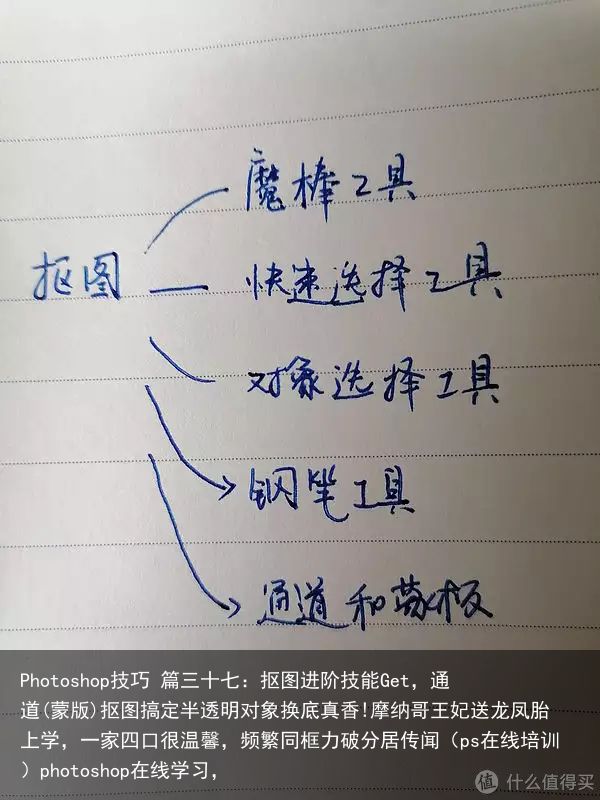 魔棒工具
抠图
快速选择工具
对象选择工具
钢笔工具
通道和蒙板
Photoshop技巧 篇三十七：抠图进阶技能Get，通
道(蒙版)抠图搞定半透明对象换底真香!摩纳哥王妃送龙凤胎
上学，一家四口很温馨，频繁同框力破分居传闻（ps在线培训
）photoshop在线学习，
值 什么值得买